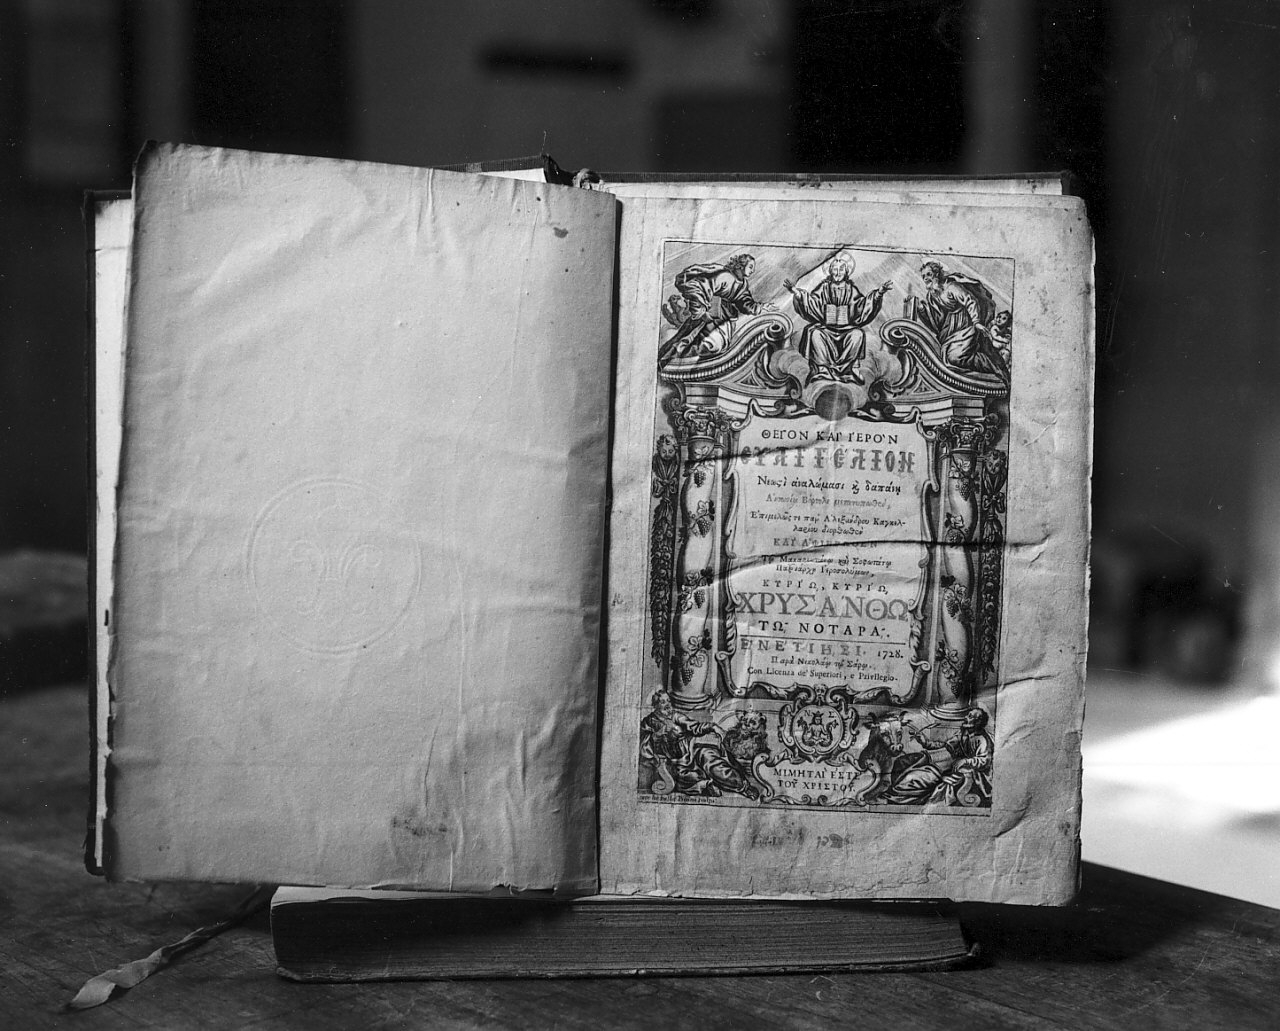 ΘΕΓΟΝ ΚΑΓ ΓΕΡΟ'Ν
ΕΥΑΓΓΕΛΙΟΝ
Νεωςὶ ἀναλώμασι κỳ δαπάνῃ
Ἀντωνίου Βόρτολι μετατυπωθέν,
Ἐπιμελῶς τε παρ' Ἀλεξάνδρου Καγκελ-
λαρίου διορθωθέν
ΚΑΙ ΑΦΙΕΡΩΘΕΝ
Τῷ Μακαριωτάτῳ καὶ Σοφωτάτῳ
Πατριάρχῃ Ἱεροσολύμων,
ΚΥΡΓΩ, ΚΥΡΓΩ,
ΧΡΥΣΑΝΘΩ
ΤΩ͂ ΝΟΤΑΡΑ͂.
ΕΝΕΤΙΗΣΙ. 1728.
Παρὰ Νικολάῳ τῷ Σάρῳ.
Con Licenza de' Superiori, e Privilegio.
ΜΙΜΗΤΑΙ ΕΣΤΕ
ΤΟΥ͂ ΧΡΙΣΤΟΥ͂.